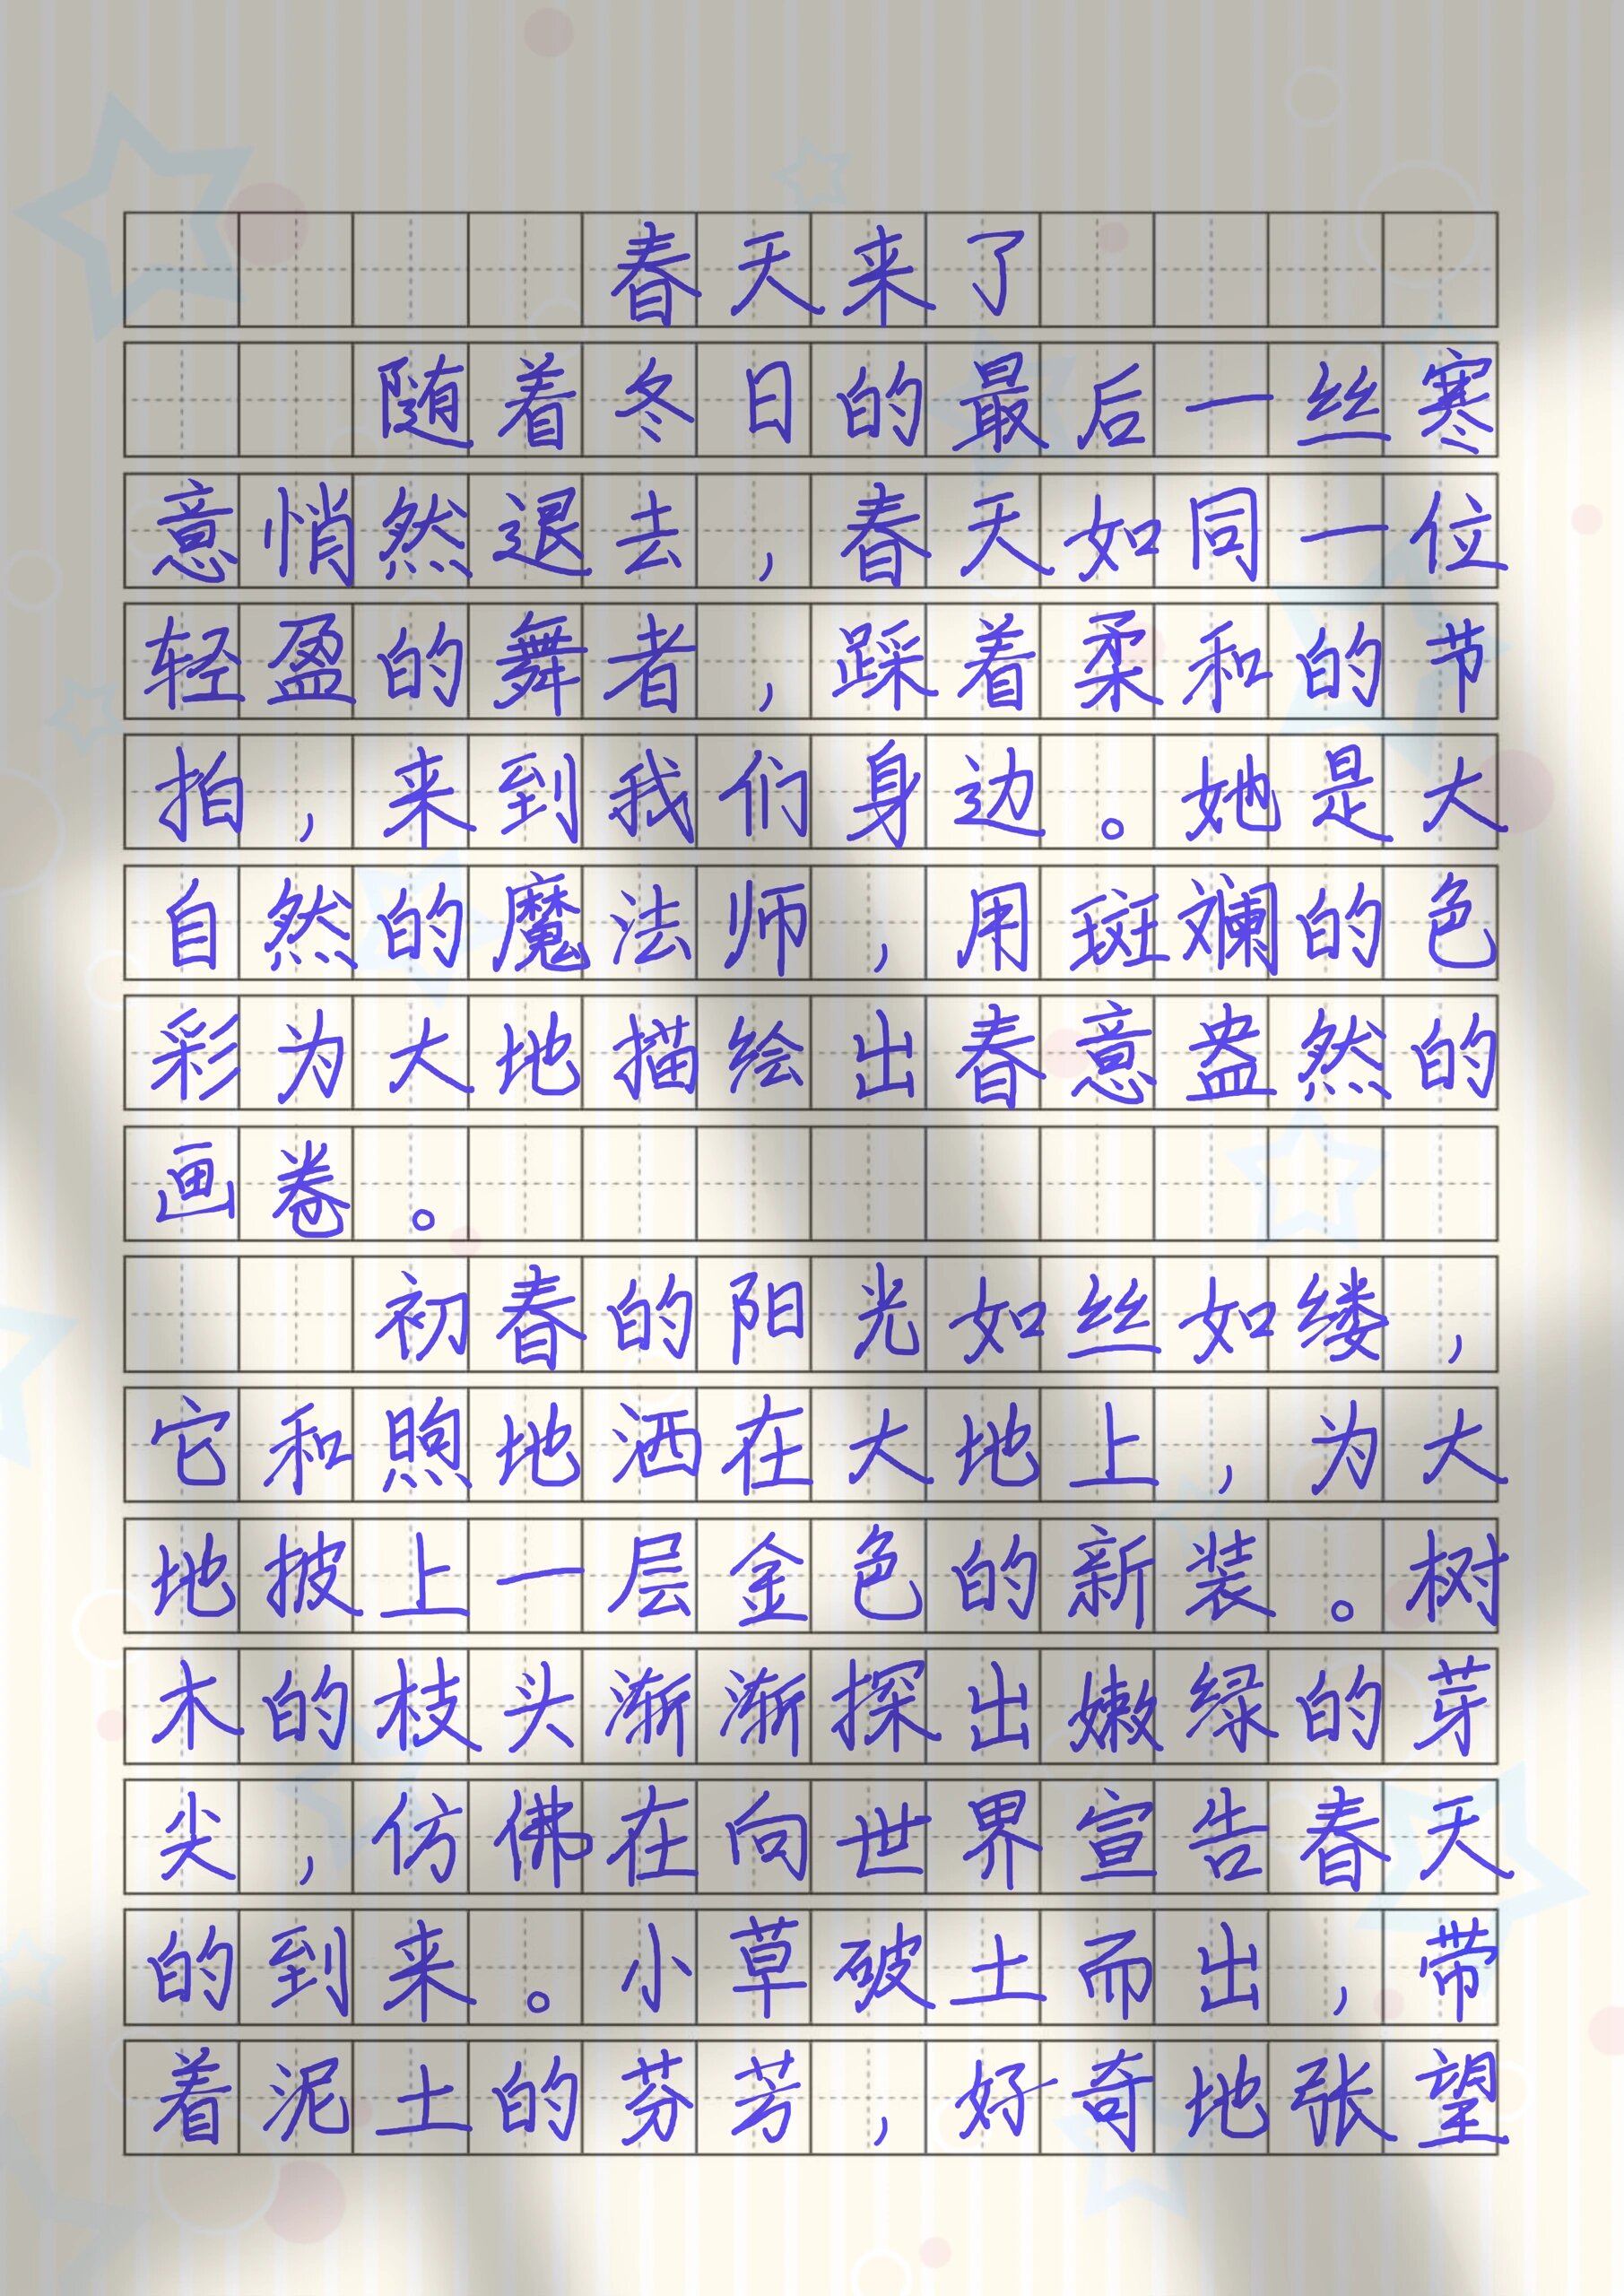 春天来了
随着冬日的最后一丝寒
意悄然退去，春天如同一位
轻盈的舞者，踩着柔和的节
拍，来到我们身边。她是大
自然的魔法师，用斑斓的色
彩为大地描绘出春意盎然的
画卷。
初春的阳光如丝如缕，
它和煦地洒在大地上，为大
地披上一层金色的新装。树
木的枝头渐渐探出嫩绿的芽
尖，仿佛在向世界宣告春天
的到来。小草破土而出，带
着泥土的芬芳，好奇地张望